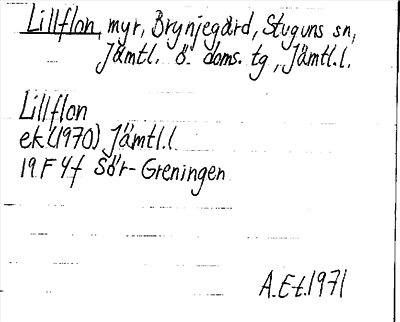 Lillflon, myr, Brynjegård, Stuguns sn,
Jämtl. ö. doms. tg, Jämtl.l.
Lillflon
ek (1970) Jämtl.l
19F 4f Sör-Greningen
A.Et.1971